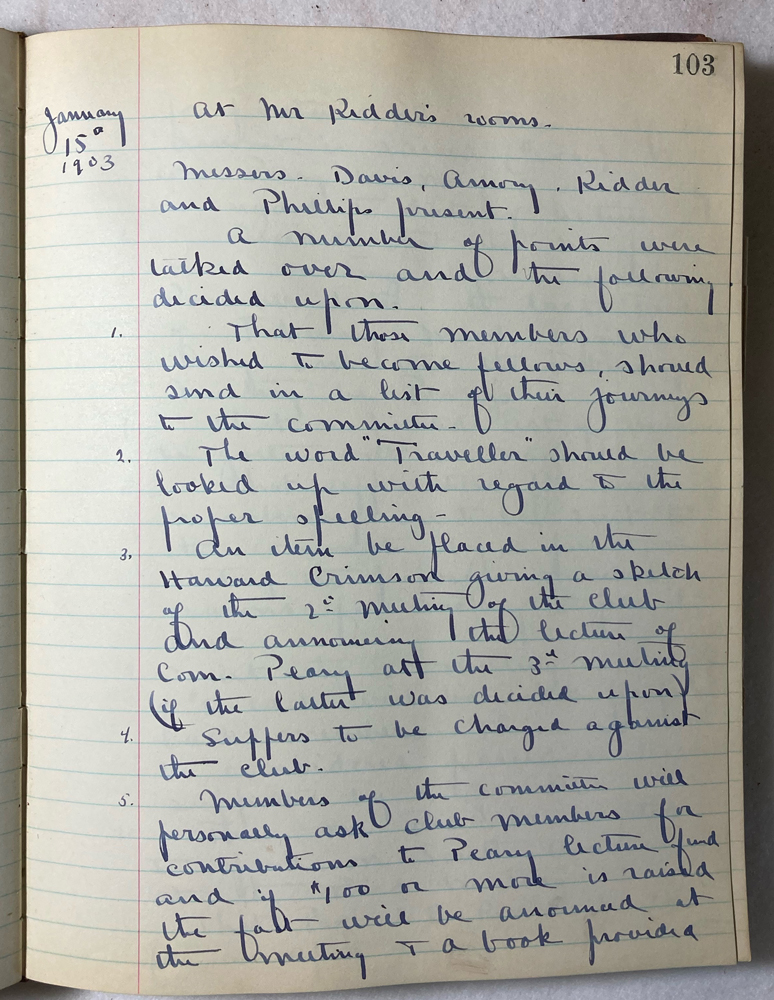 103
January
15th
1903
At Mr Kidder's rooms.
Messers. Davis, Amory, Kidder
and Phillips present.
A number of points were
talked over and the following
decided upon.
1. That those members who
wished to become fellows, should
send in a list of their journeys
to the committee.
2. The word "Traveller" should be
looked up with regard to the
proper spelling.
3. An item be placed in the
Harvard Crimson giving a sketch
of the 2nd meeting of the club
and announcing the lecture of
Com. Peary at the 3rd meeting
(if the latter was decided upon)
4. Suppers to be charged against
the club.
5. Members of the committee will
personally ask club members for
contributions to Peary lecture fund
and if $100 or more is raised
the fact will be anounced at
the meeting + a book provided